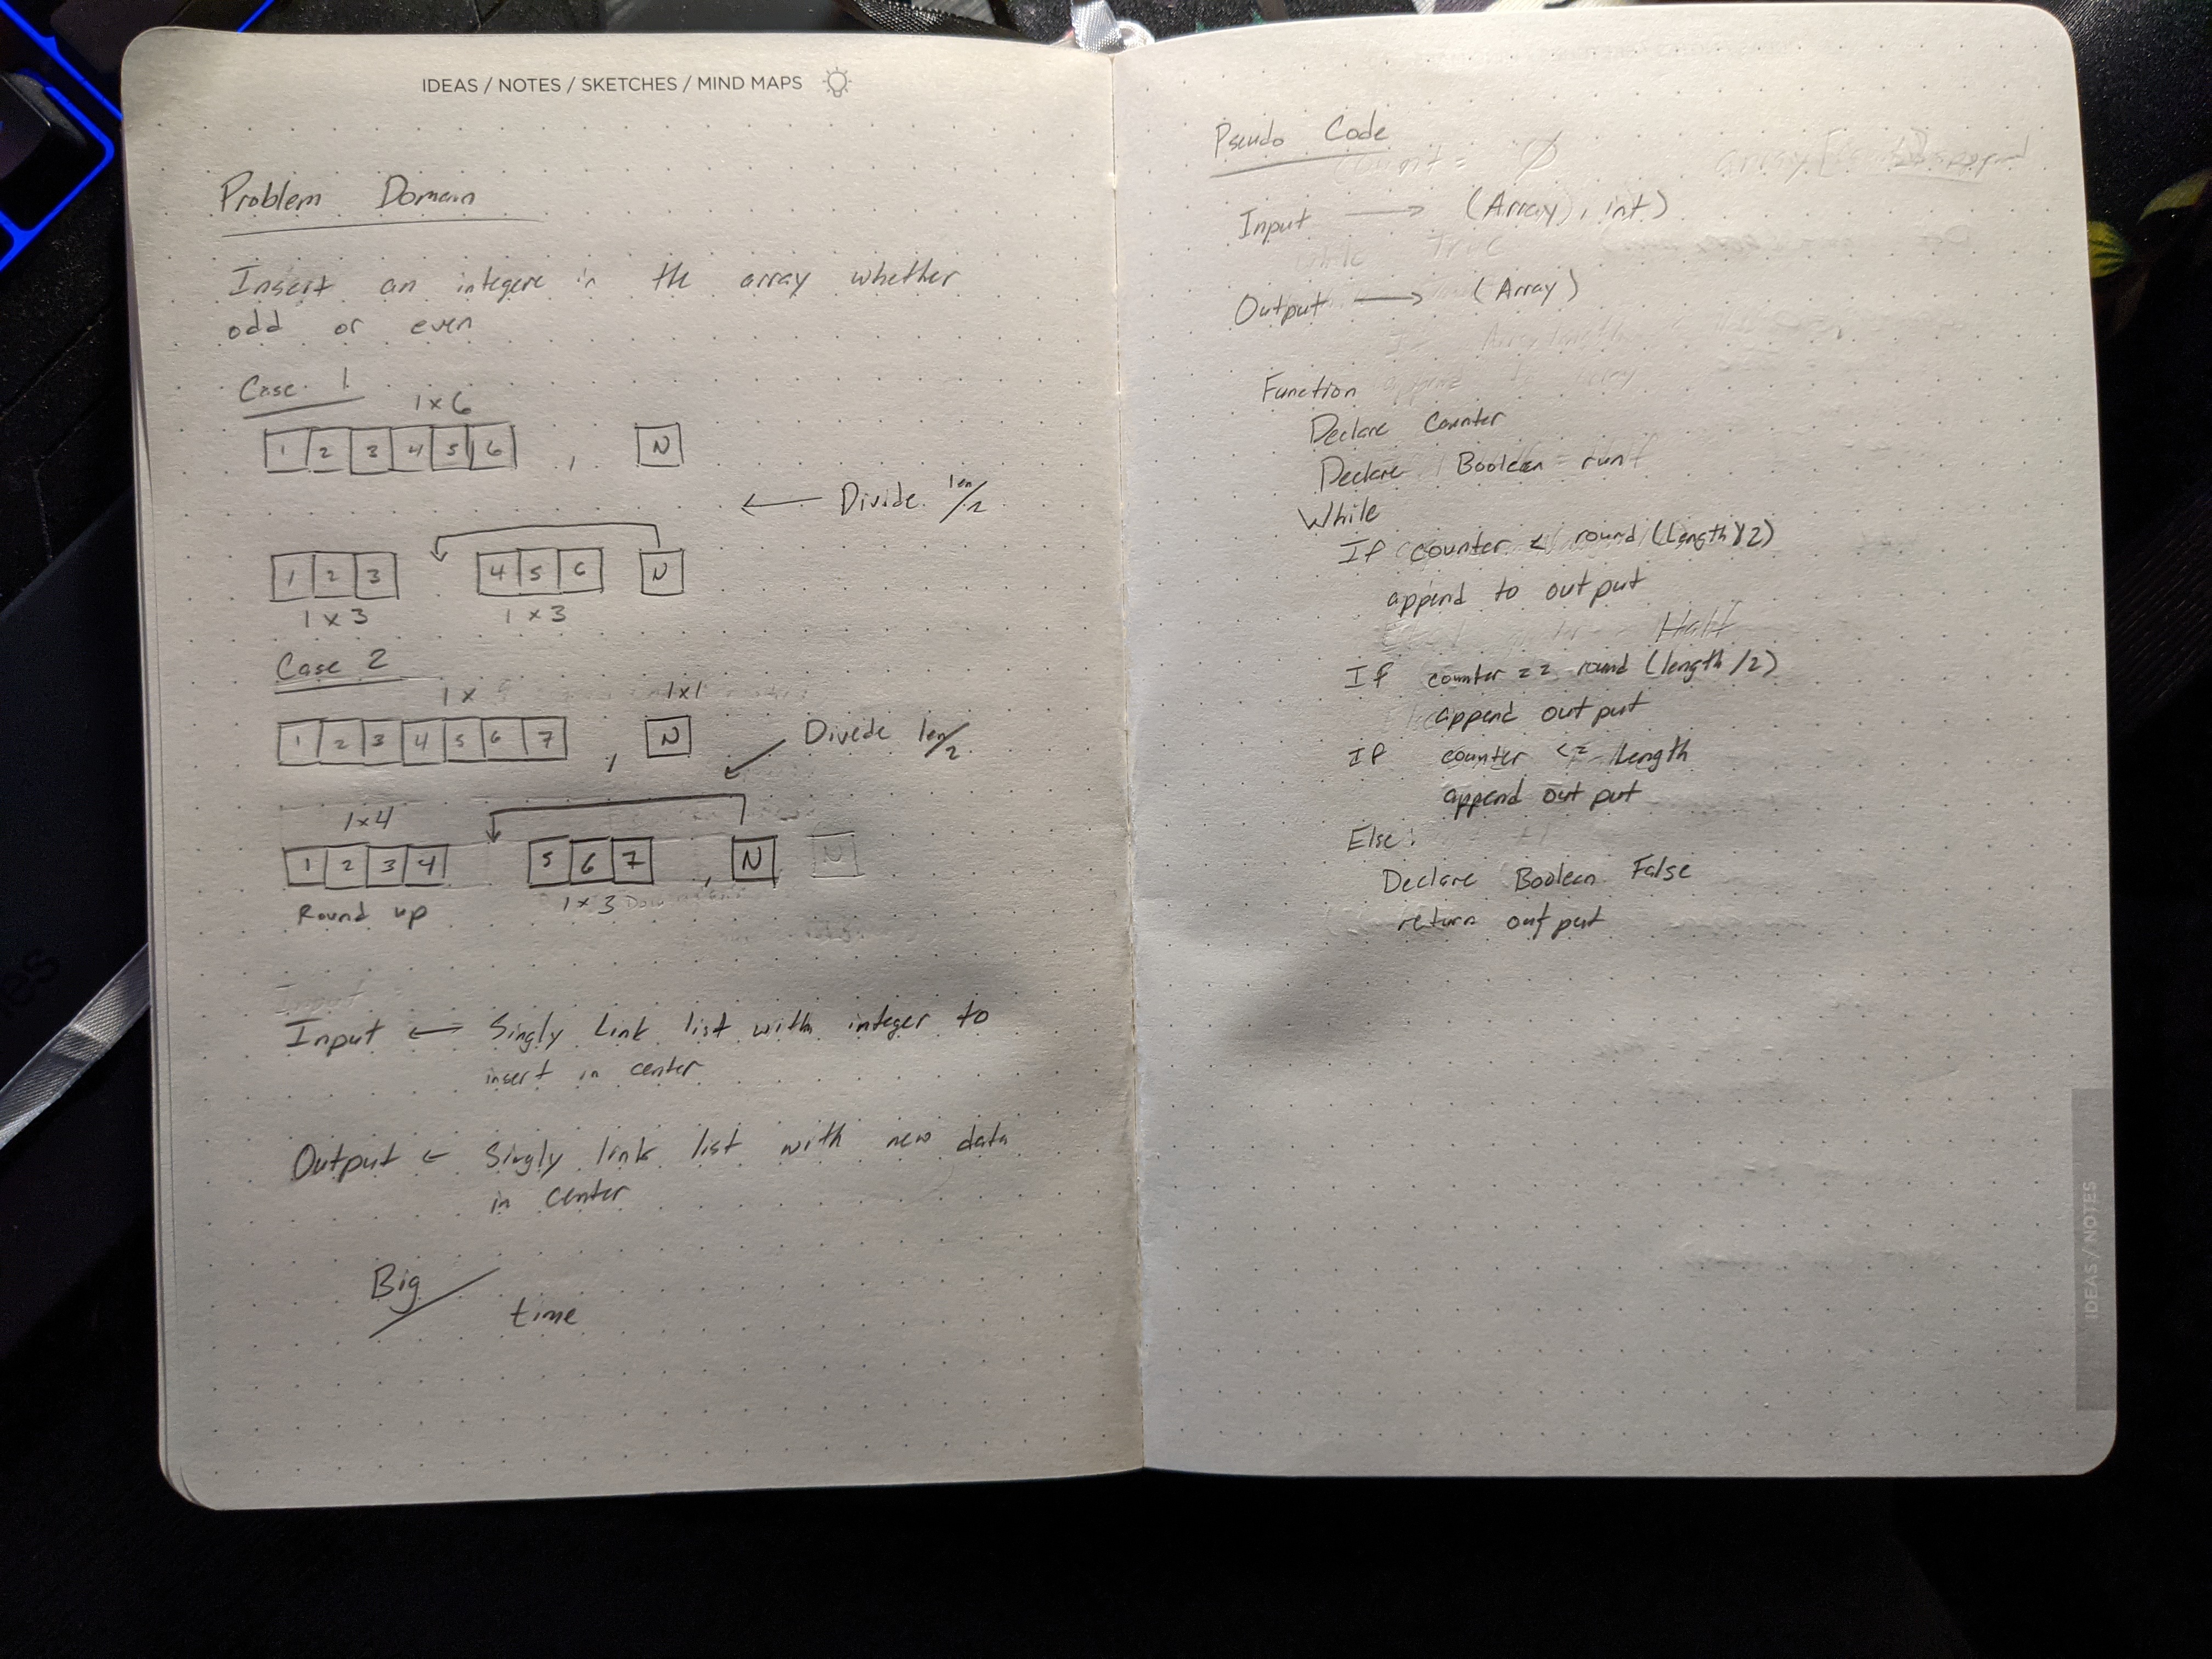 IDEAS / NOTES / SKETCHES / MIND MAPS
Problem Domain
Insert an integere in the array whether
odd or even
Case 1 1x6
1 2 3 4 5 6 , N
← Divide len/2
1 2 3 4 5 6 N
1x3 1x3
Case 2 1x 1x1
1 2 3 4 5 6 7 , N
Divide len/2
1x4
1 2 3 4 5 6 7 , N N
Round up 1x3
Input ← Singly Link list with integer to
insert in center
Output ← Singly link list with new data
in center
Big time
Pseudo Code
Input → (Array), int)
Output → (Array)
Function
Declare Counter
Declare Boolean = run
While
If counter < round (length/2)
append to output
Half
If counter == round (length/2)
append output
If counter <= length
append output
Else:
Declare Boolean False
return output
IDEAS / NOTES
es